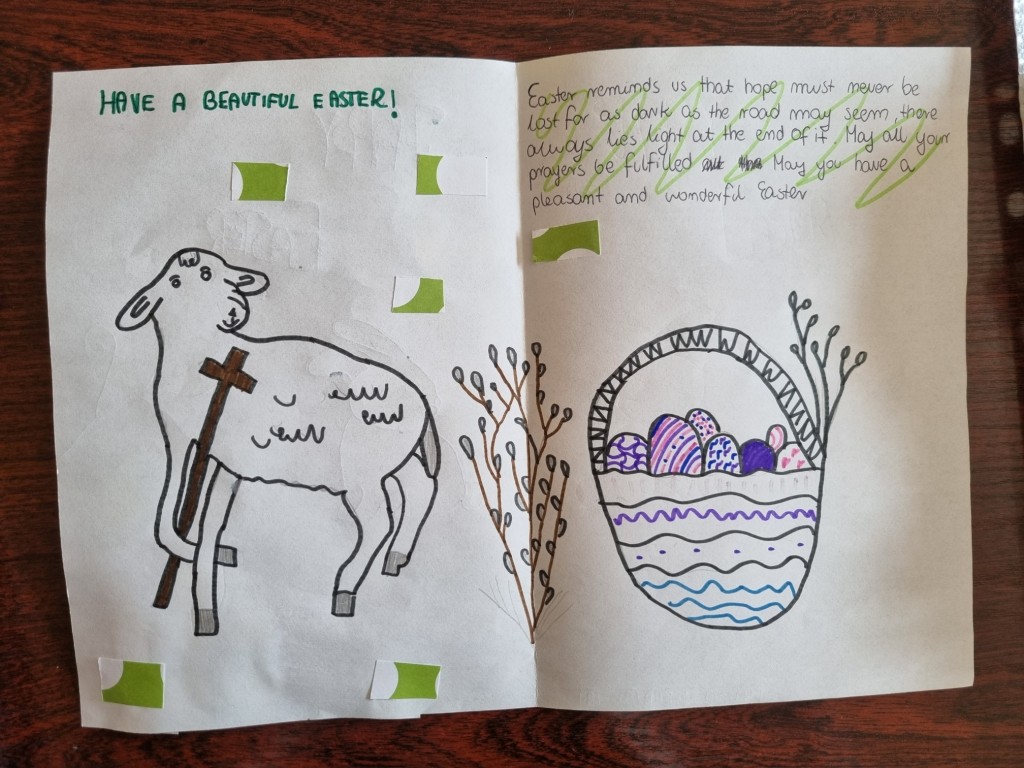 HAVE A BEAUTIFUL EASTER!
Easter reminds us that hope must never be
lost for as dark as the road may seem, there
always lies light at the end of it. May all your
prayers be fulfilled May you have a
pleasant and wonderful Easter